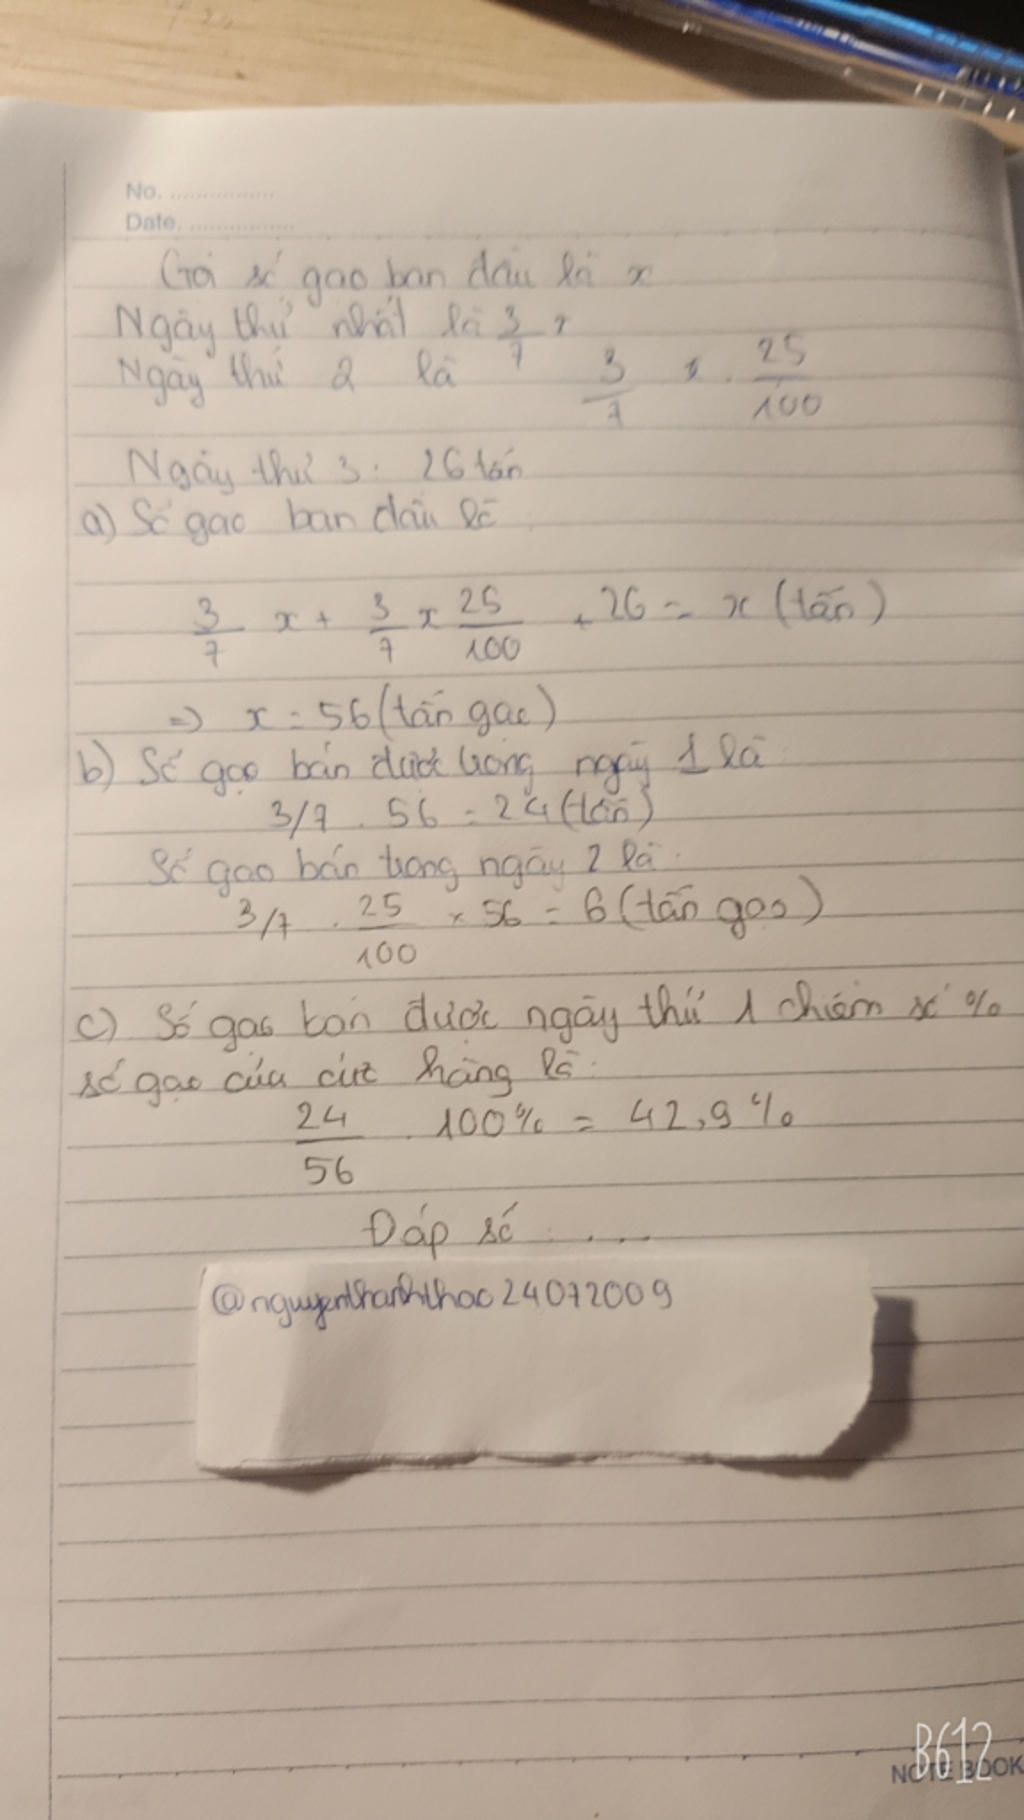 No. ................
Date. ................
Gọi số gạo ban đầu là x
Ngày thứ nhất là 3/7 x
Ngày thứ 2 là 3/7 x . 25/100
Ngày thứ 3: 26 tấn
a) Số gạo ban đầu là:
3/7 x + 3/7 x 25/100 + 26 = x (tấn)
=> x = 56 (tấn gạo)
b) Số gạo bán được trong ngày 1 là:
3/7 . 56 = 24 (tấn)
Số gạo bán trong ngày 2 là:
3/7 . 25/100 x 56 = 6 (tấn gạo)
c) Số gạo bán được ngày thứ 1 chiếm số %
số gạo của cửa hàng là:
24/56 . 100% = 42,9%
Đáp số : ....
@nguyenthanhthao24072009
B612
NOTE BOOK